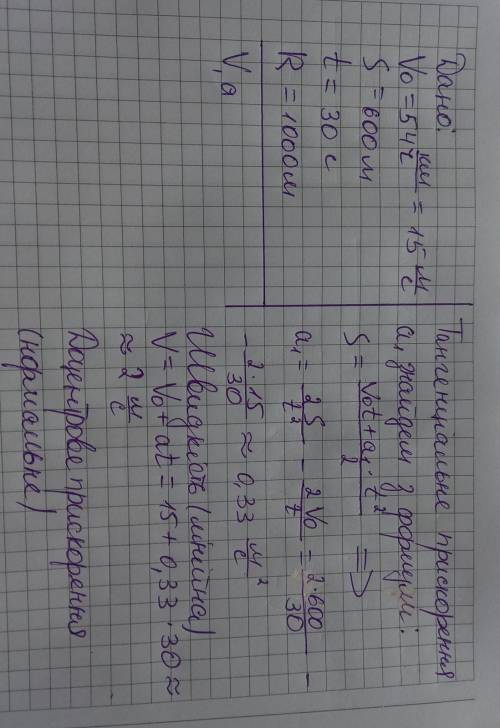 Дано:
V₀ = 54 км/г = 15 м/с
S = 600 м
t = 30 с
R = 1000 м
V, a
Тангенціальне прискорення
a₁ знайдем з формули:
S = (V₀t + a₁ · t²)/2 ⇒
a₁ = 2S/t² - 2V₀/t = 2·600/30 -
- 2·15/30 ≈ 0,33 м/с²
Швидкість (лінійна)
V = V₀ + at = 15 + 0,33 · 30 ≈
≈ 2 м/с
Доцентрове прискорення
(нормальне)